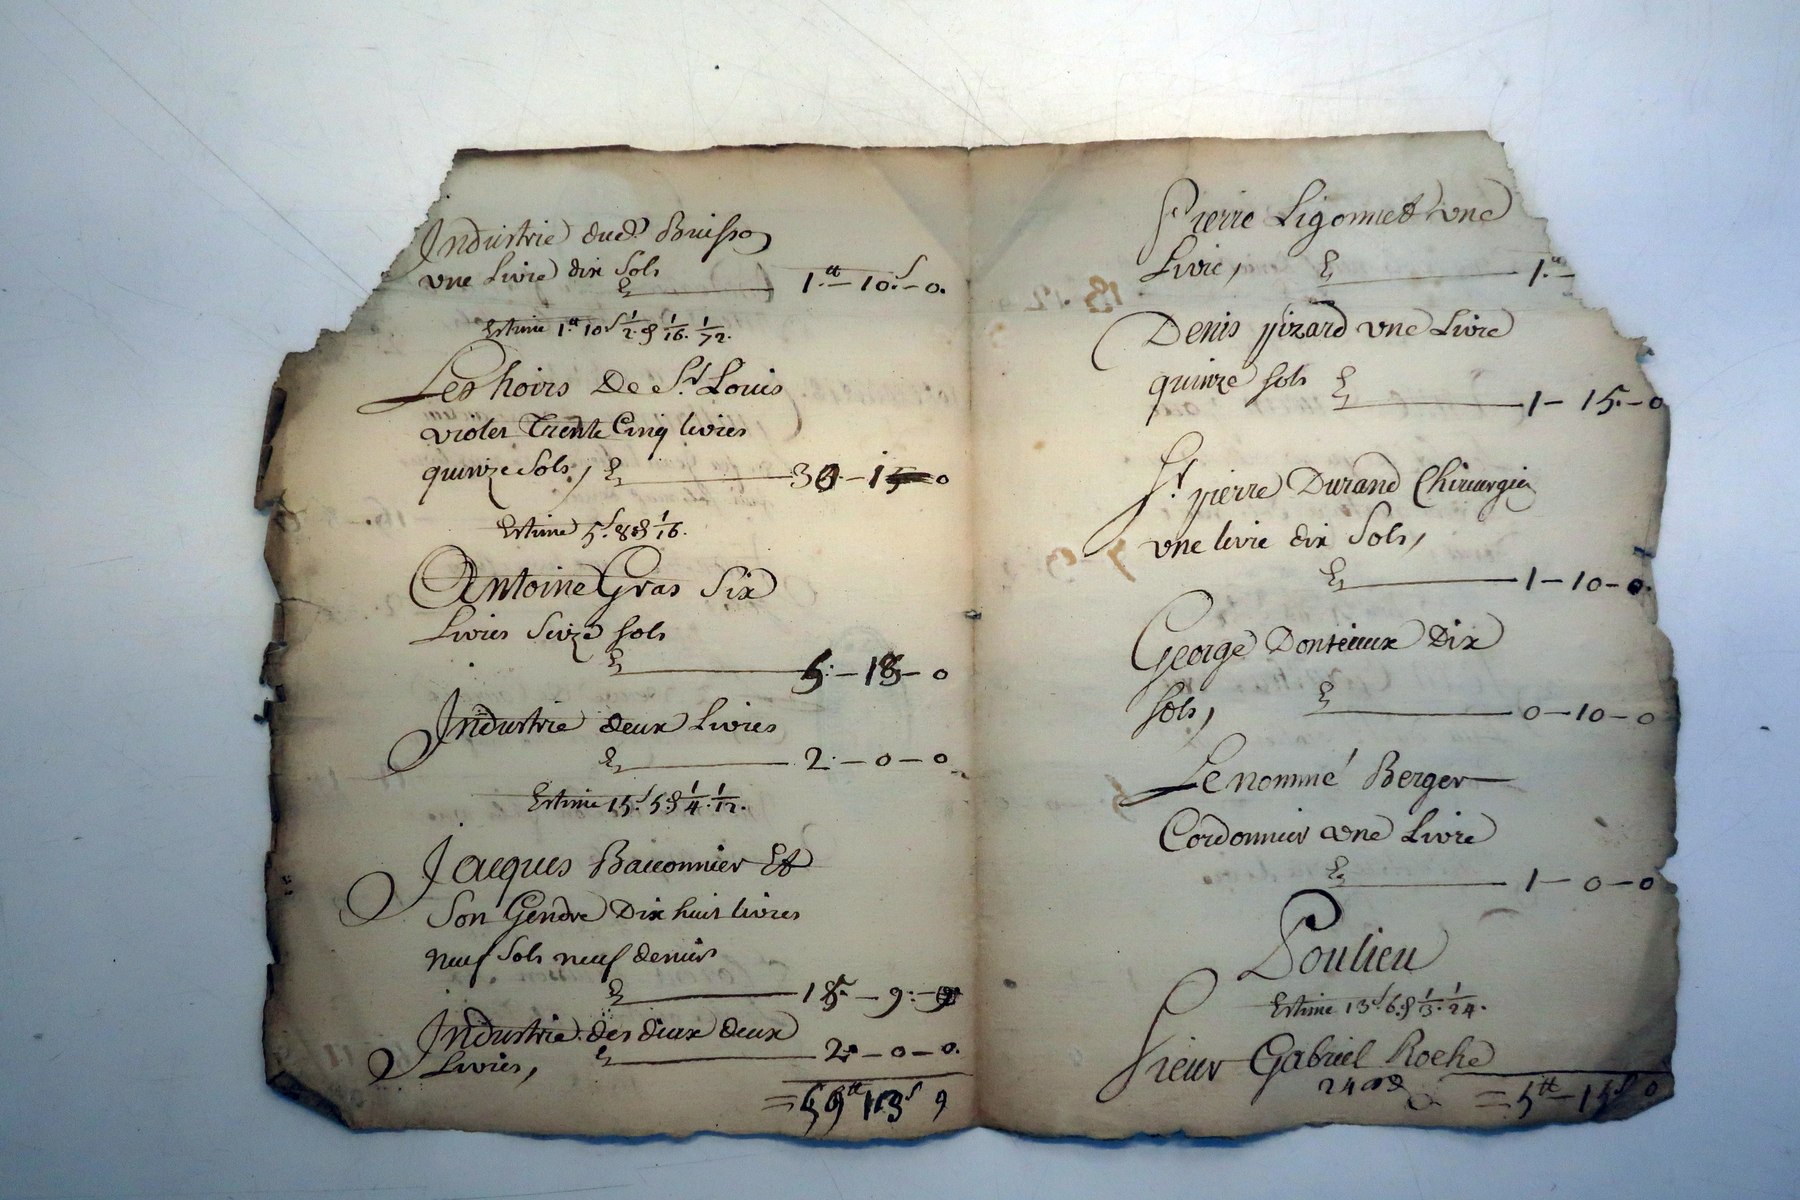 Industrie dud.^t Buisson
une Livre dix Sols
1.^tt – 10.^s – 0.
Estime 1.^tt 10^s 1/2. d 1/16. 1/72.
Les hoirs De S.^r Louis
violet Trente Cinq livres
quinze Sols, 15 – 0
Estime 5.^s 8 d 1/16.
Antoine Gras Six
Livres Seize sols
0
Industrie deux Livres
2. – 0 – 0
Estime 15.^s 5 d 1/4. 1/12.
Jacques Baconnier Et
Son Gendre Dix huit livres
neuf Sols neuf deniers
18. – 9. – 9
Industrie des deux deux
Livres, 2. – 0 – 0.
9
Pierre Ligonnet une
Livre, 1.^tt –
Denis pizard une Livre
quinze sols 1 – 15. – 0
S.^r pierre Durand Chirurgien
une livre dix Sols,
1 – 10 – 0.
George Dix
sols, 0 – 10 – 0
Le nommé Berger
Cordonnier une Livre
1 – 0 – 0
Poulieu
Estime 13.^s 6. d 1/3. 1/24.
Sieur Gabriel Roche
= 5^tt – 15^s 0